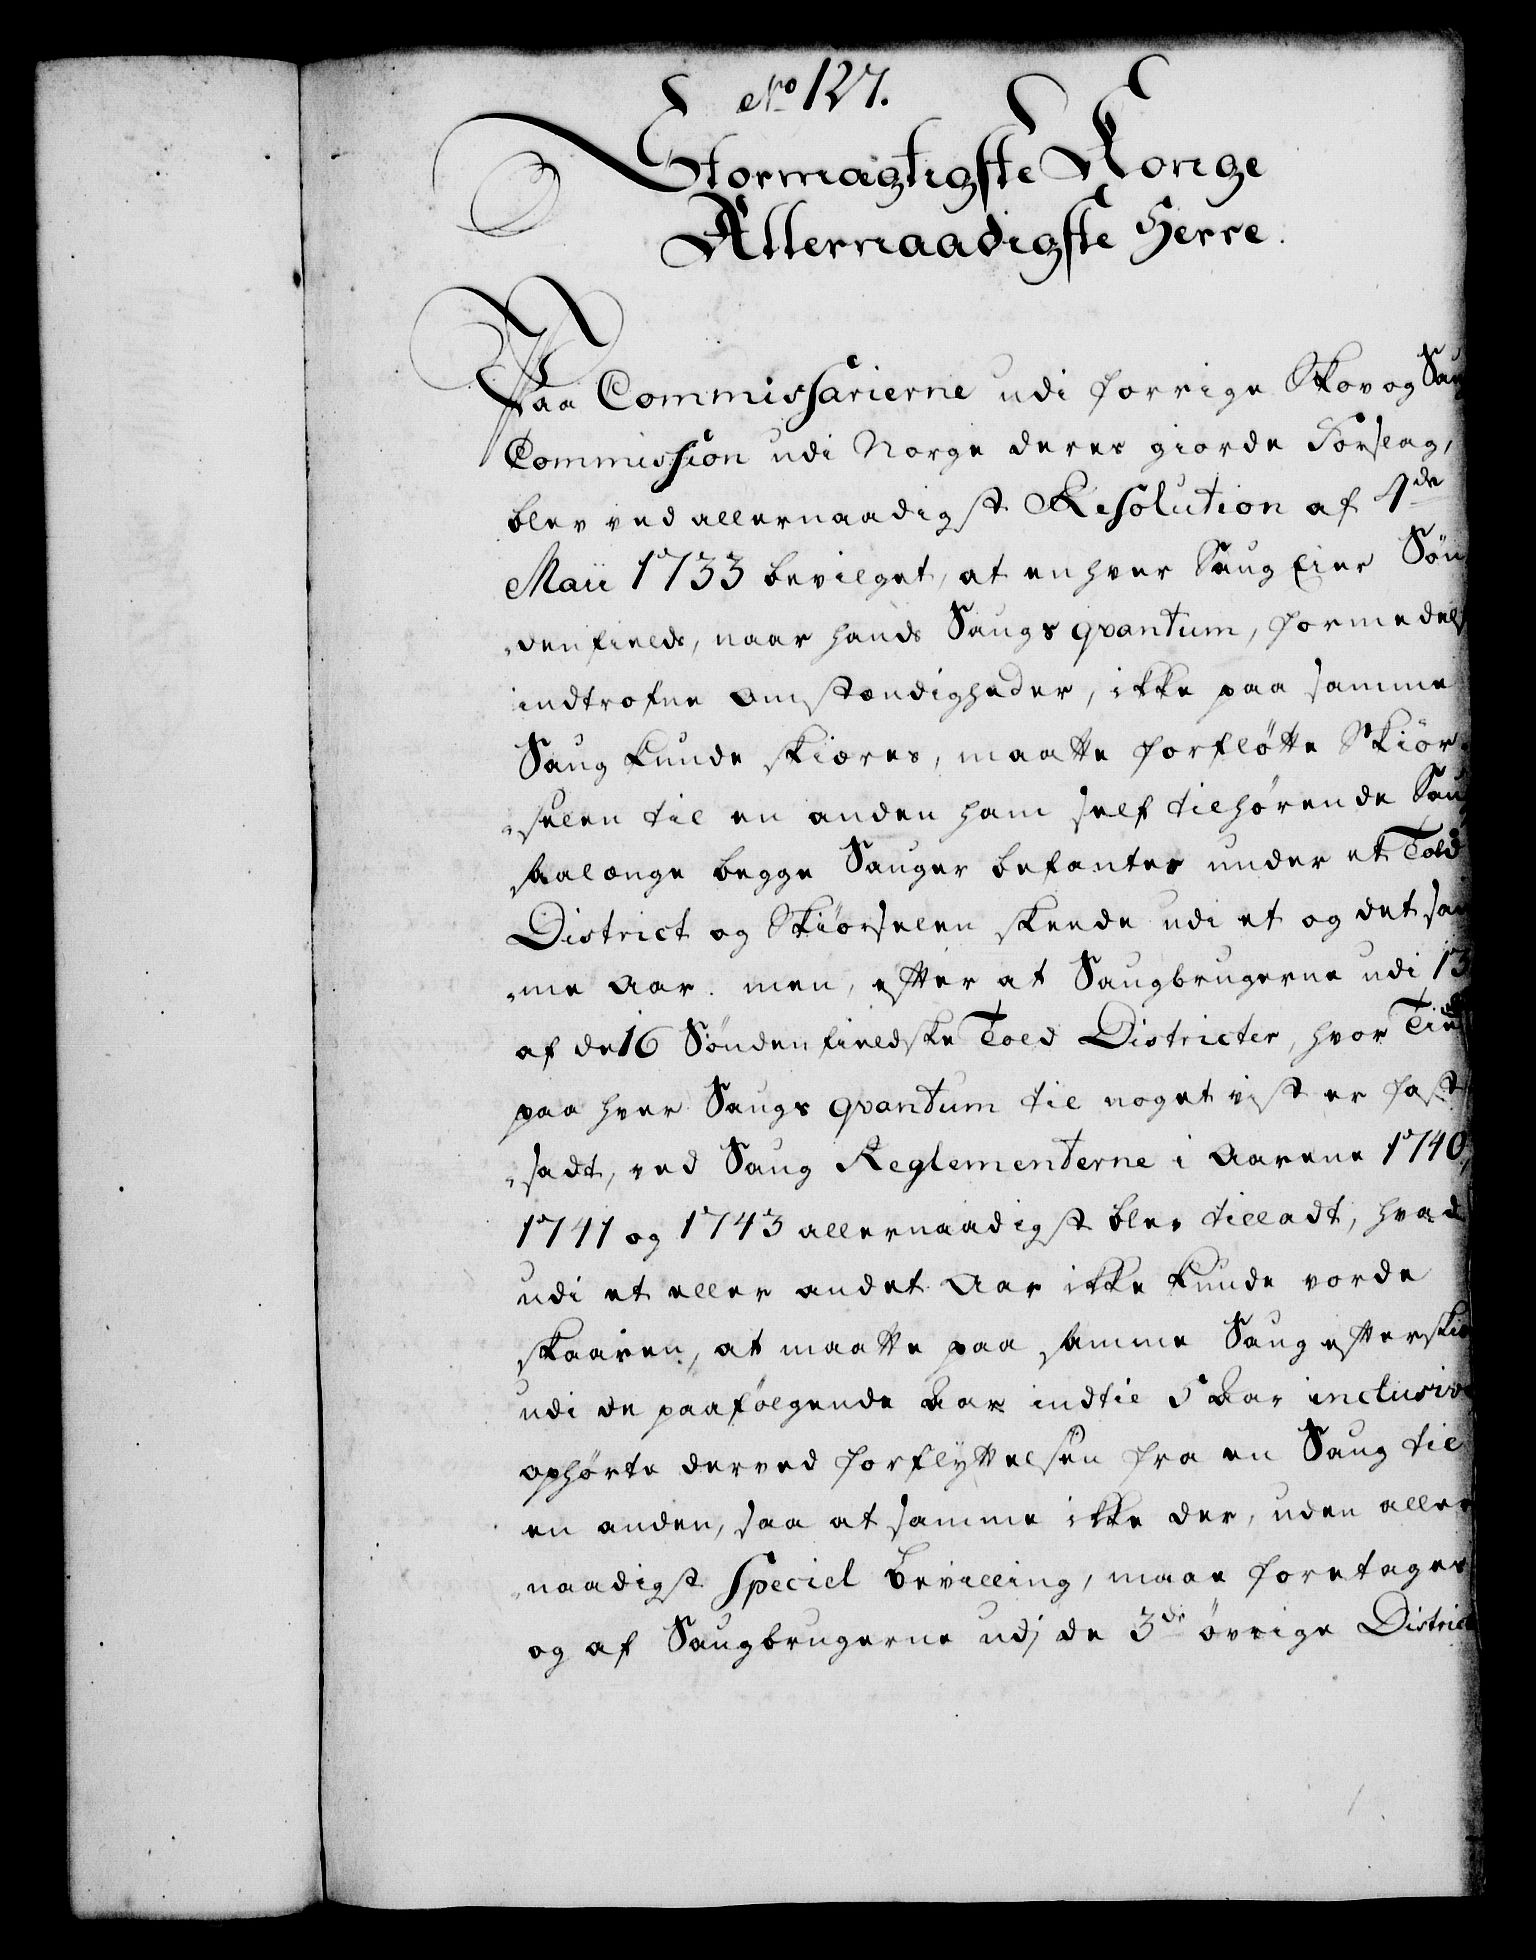 No 127.
Stormagtigste Konge
Allernaadigste Herre.
Paa Commissarierne udi forrige Skov og Saug
Commission udi Norge deres giorde Forslag,
blev ved allernaadigst Resolution af 1de
Maii 1733 bevilget, at enhver Saug Eier Søn
denfields, naar hands Saugs qvantum, formedelst
indtrofne Omstændigheder, ikke paa samme
Saug kunde skiæres, maatte forfløtte Skiør-
selen til en anden ham self tilhørende Saug
saalænge begge Sauger befantes under et Told
District og Skiørselen skeede udi et og det sam
me Aar. men, efter at Saugbrugerne udi 13
af de 16 Søndenfieldske Told Districter, hvor Tiden
paa hver Saugs qvantum til noget vist er fast
sadt, ved Saug Reglementerne i Aarene 1740,
1741 og 1743 allernaadigst blev tilladt, hvad
udi et eller andet Aar ikke kunde vorde
skaaren, at maatte paa samme Saug efterskiæ
udi de paafølgende Aar indtil 5 Aar inclusive
ophørte derved forflyttelsen fra en Saug til
en anden, saa at samme ikke der, uden aller
naadigst Speciel Bevilling, maae foretages
og af Saugbrugerne udj de 3de øvrige District